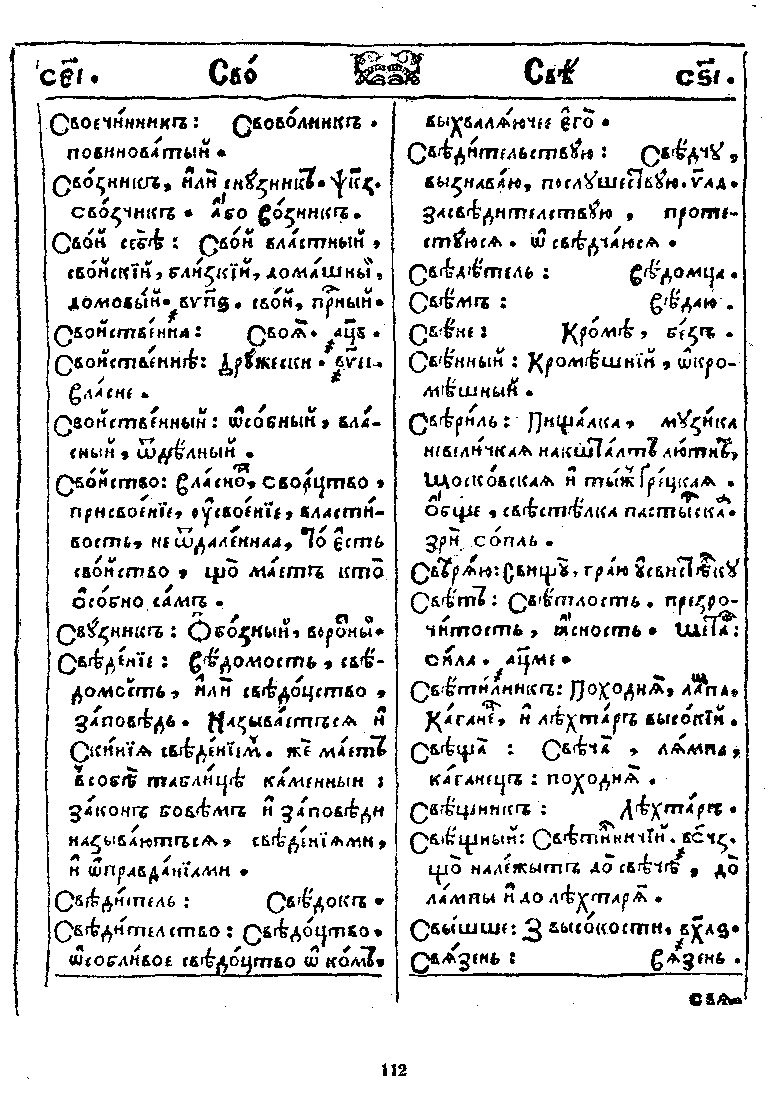 сє҃і. Сво́ Свѣ̀ сѕ҃і.
Своечи́нникъ: Свово́лникъ.
повинова́тый.
Сво́зникъ, и҆лѝ сну́зникъ.
Сво́зчикъ. а҆бо во́зникъ.
Сво́й себѣ̀: Сво́й вла́стный,
сво́йскїй, бли́зкїй, дома́шны̆,
домо́вый. сво́й,
Сво́йстве́нна: Своѧ̀.
Сво́йстве́ннѣ: дру́жески.
вла́сне.
Сво́йстве́нный: ѡ҆со́бный, вла́-
сный, ѿдѣ́лный.
Сво́йство: вла́сно, своѧ́цтво,
присвое́нїе, оу҆свое́нїе, власти́-
вость, не ѿдале́ннаа, То̀ е҆́сть
сво́йство, що̀ ма́етъ кто̀
ѻ҆со́бно са́мъ.
Сву́зникъ: Ѻ҆бо́зный,
Свѣ́денїе: вѣ́домость, свѣ-
домость, и҆лѝ свѣдо́цство,
за́повѣдь. Называ́етъсѧ и҆
Ски́нїѧ свѣде́нїемъ. же ма́етъ
в собѣ̀ табли́цѣ ка́менныи:
зако́нъ бовѣ́мъ и҆ за́повѣди
называ́ютъсѧ, свѣде́нїѧми,
и҆ ѡ҆правда́нїами.
Свѣди́тель: Свѣ́докъ.
Свѣди́телство: Свѣдо́цтво.
ѡ҆собли́вое свѣдо́цтво ѡ҆ ко́мъ,
выхвалѧ́ючее є҆го̀.
Свѣди́тельствую: Свѣ́дчу,
вызнава́ю, послуше́ствую.
засвѣди́телствую, проте-
сту́юсѧ. ѡ҆свѣдча́юсѧ.
Свѣдѣ́тель: вѣ́домца.
Свѣ́мъ: вѣ́даю.
Свѣ́не: Кро́мѣ, бе́зъ.
Свѣ́нный: Кромѣ́шнїй, ѡ҆кро-
мѣ́шный.
Свѣ́риль: Пища́лка, му́зика
невели́чкаѧ накшта́лтъ лю́тнѣ,
щоско́вскаѧ и҆ ты́ж Гре́цкаѧ.
Ѻ҆́бще, свѣстѣ́лка пасты́скаѧ.
зрѝ со́пль.
Свѣрѧ́ю: Свищу̀, гра́ю
Свѣ́тъ: Свѣ́тлость. презро-
чи́тость, ѧ҆́сность.
си́ла.
Свѣти́лникъ: Походнѧ̀, ла́мпа,
Кагане́, и҆ лѣхта́ръ высо́кїй.
Свѣща̀: Свѣча̀, лѧ́мпа,
кагане́цъ: походнѧ̀.
Свѣ́щникъ: Лѣхта́ръ.
Свѣ́щный: Свѣти́лничїй.
що̀ нале́житъ до̀ свѣчѣ̀, до̀
ла́мпы и҆ до лѣхтарѧ̀.
Свы́шше: З высо́кости,
Свѧ́зень: вѧ́зень.
свѧ
112